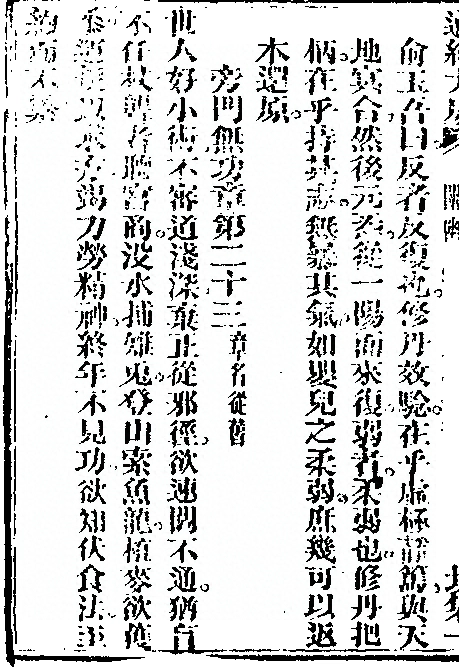 俞玉吾曰反者反復也修丹效驗在乎虛極靜篤與天
地冥合然後元炁從一陽而來復弱者柔弱也修丹把
柄在乎持其志無暴其氣如嬰兒之柔弱庶幾可以返
本還原
旁門無功章第二十三 章名從舊
世人好小術不審道淺深棄正從邪徑欲速閼不通猶盲
不任杖聾者聽宮商没水捕雉兎登山索魚龍植麥欲穫
黍運規以求方竭力勞精神終年不見功欲知伏食法至
約而不繁